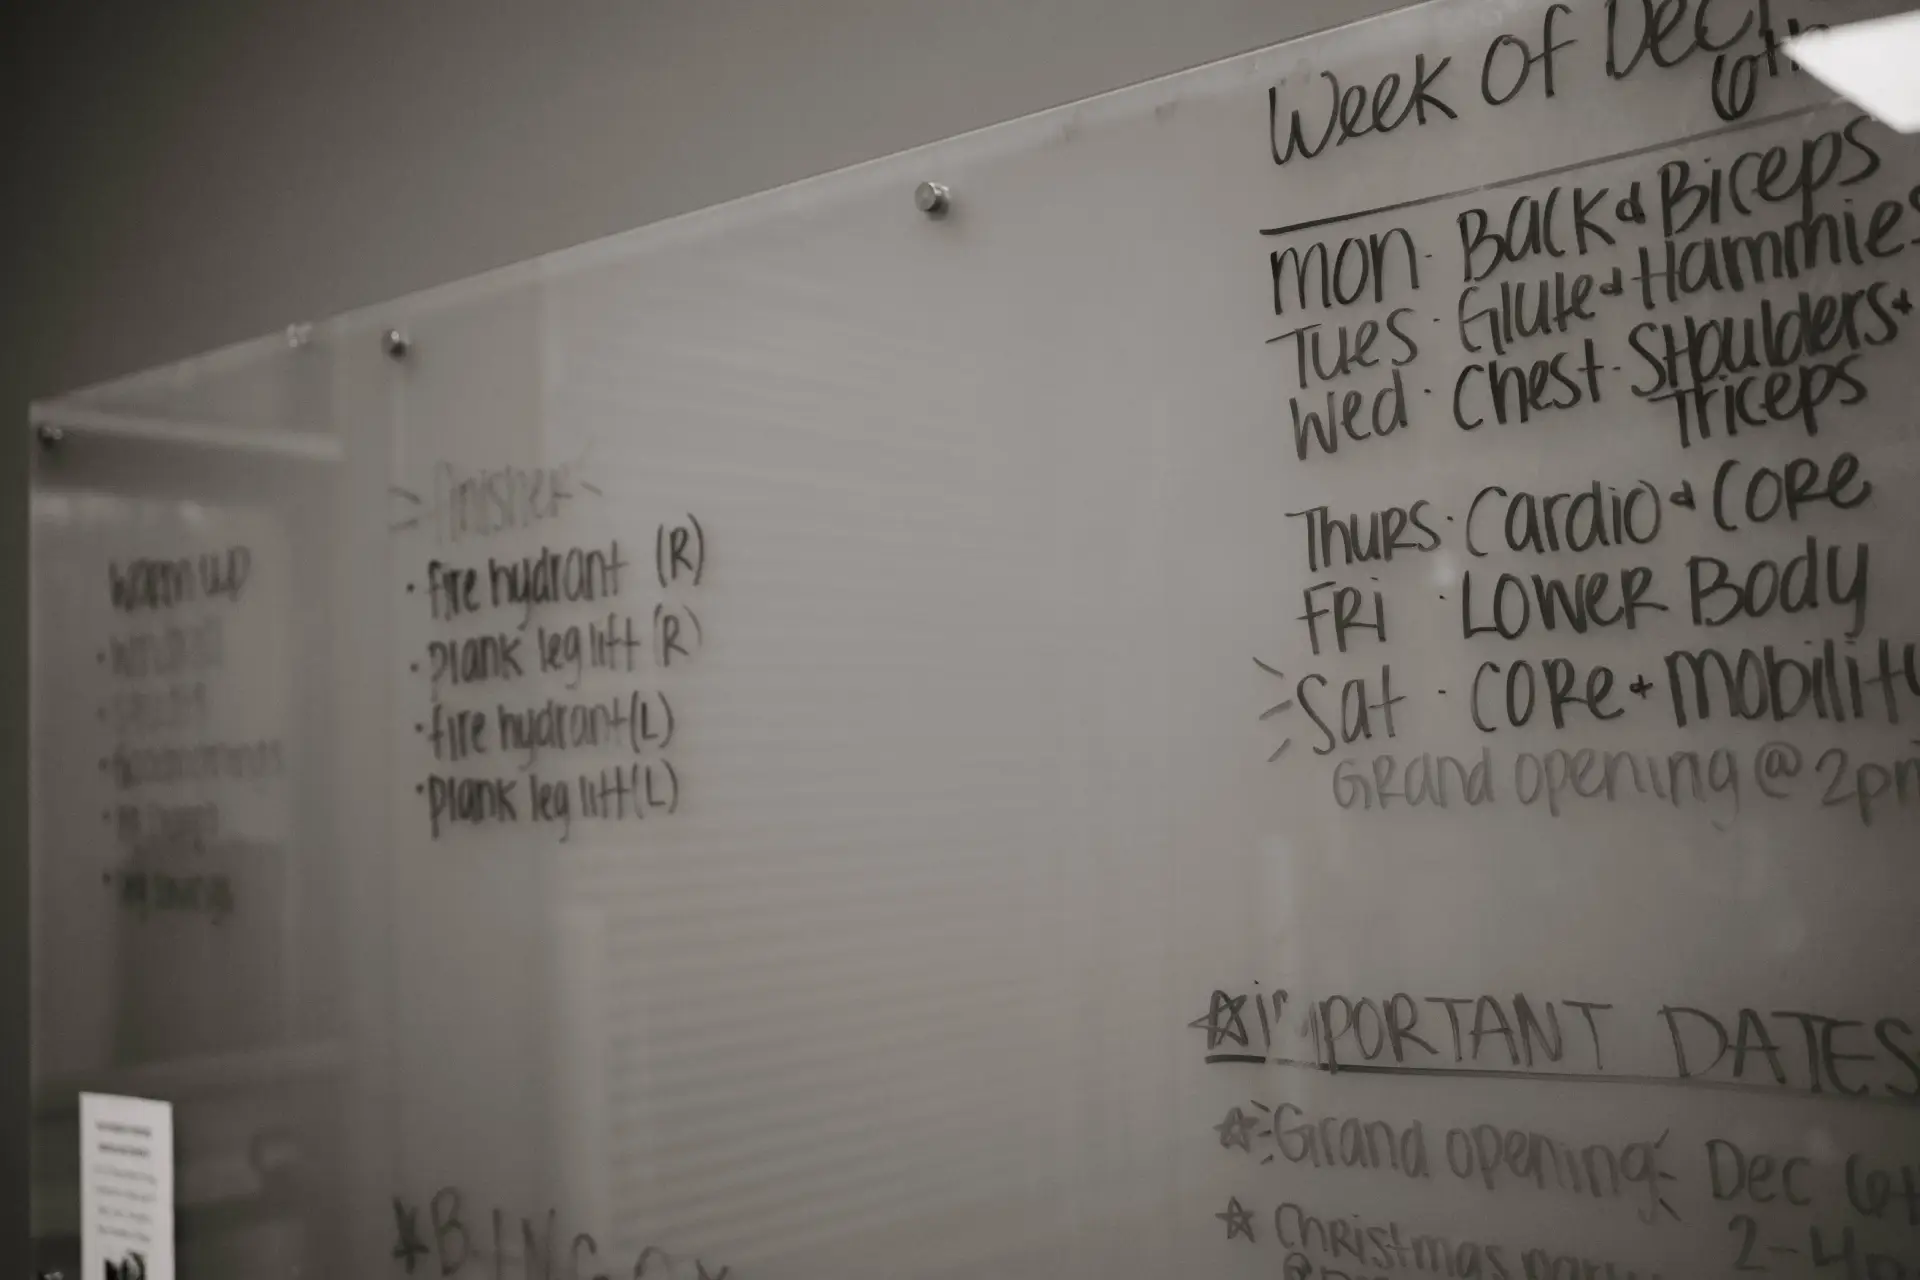 warm up
Finisher
· fire hydrant (R)
· plank leg lift (R)
· fire hydrant (L)
· plank leg lift (L)
BINGO
Week of Dec
6th
Mon · Back & Biceps
Tues · Glute & Hammies
Wed · Chest · Shoulders +
Triceps
Thurs · Cardio & Core
Fri · Lower Body
Sat · Core + Mobility
Grand opening @ 2pm
IMPORTANT DATES
Grand opening Dec 6th
2-4p
Christmas party